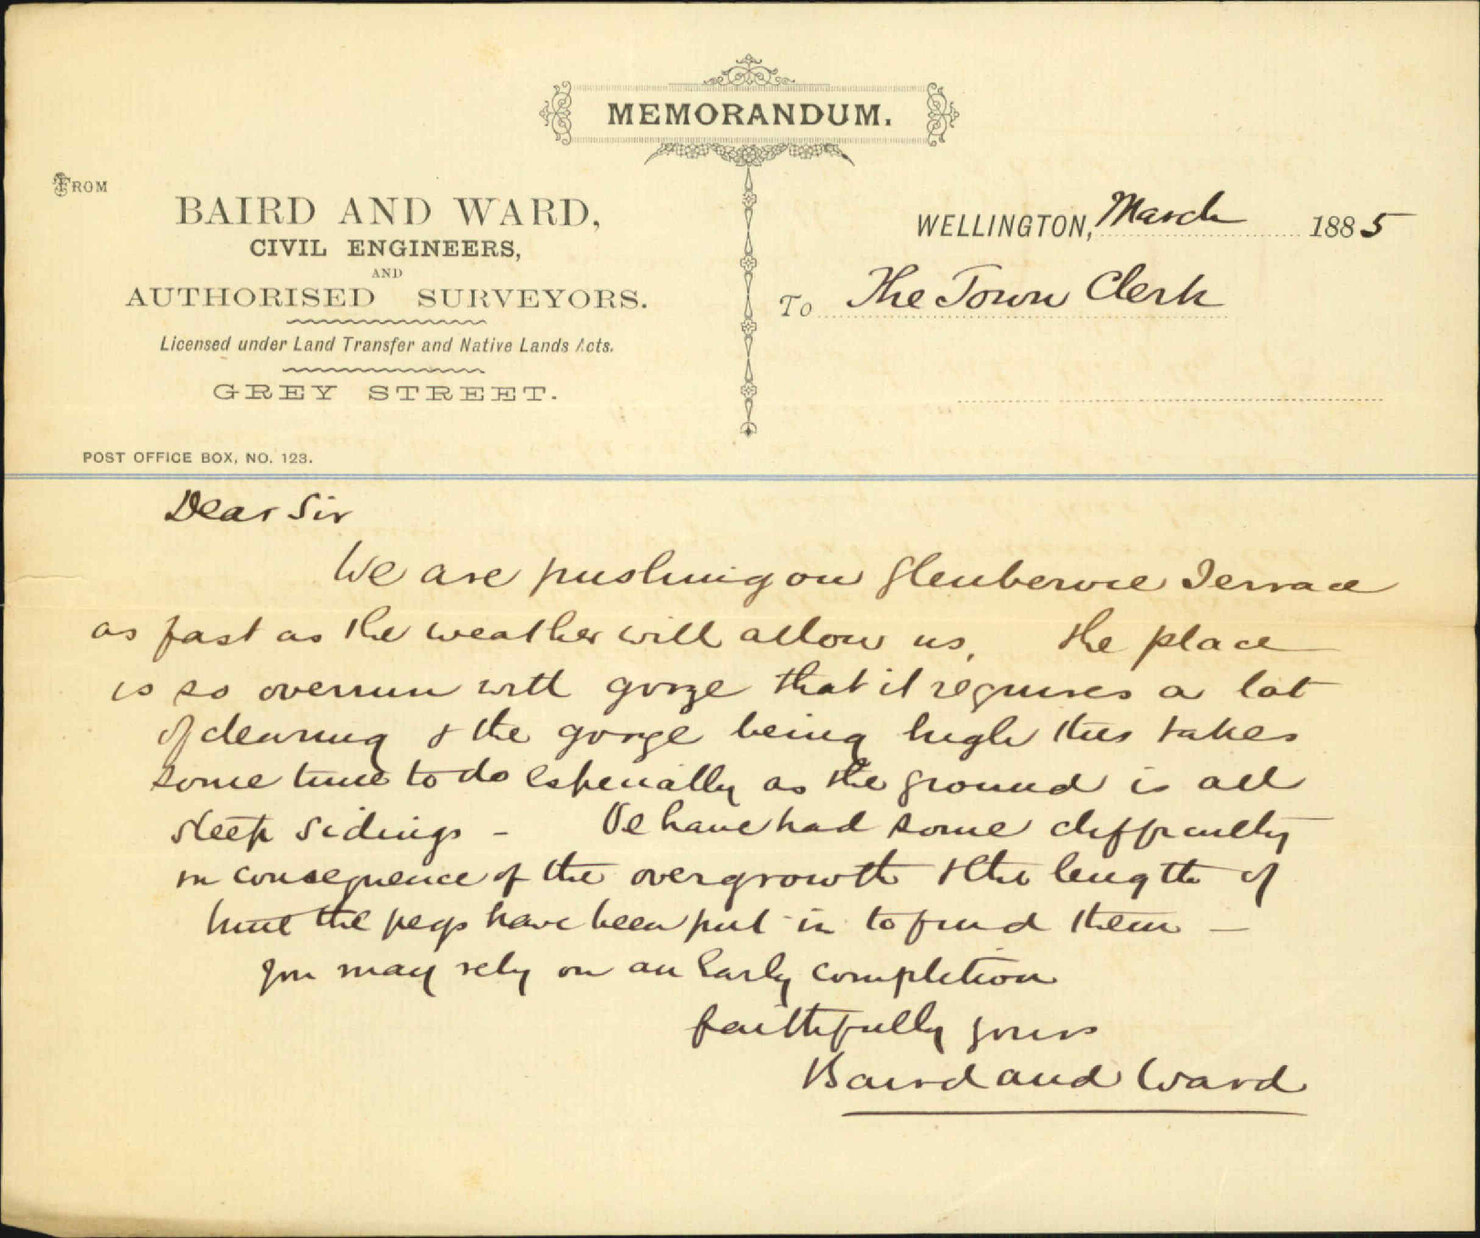 MEMORANDUM.
FROM
BAIRD AND WARD,
CIVIL ENGINEERS,
AND
AUTHORISED SURVEYORS.
Licensed under Land Transfer and Native Lands Acts.
GREY STREET.
POST OFFICE BOX, NO. 123.
WELLINGTON, March 1885
To The Town Clerk
Dear Sir
We are pushing on Glenbervie Terrace
as fast as the weather will allow us, the place
is so overrun with gorze that it requires a lot
of clearing & the gorze being high this takes
some time to do especially as the ground is all
steep sidings - We have had some difficulty
in consequence of the overgrowth & the length of
time the pegs have been put in to find them -
you may rely on an early completion
faithfully yours
Baird and Ward